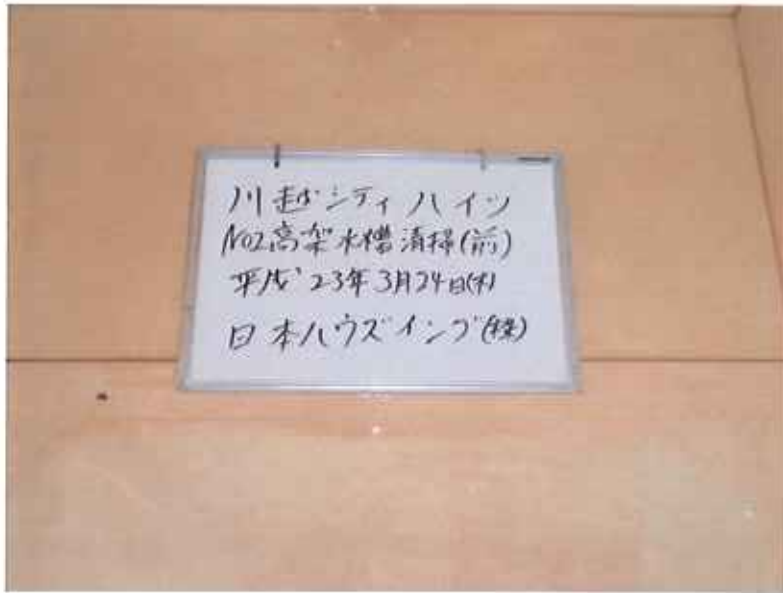 川越シティハイツ
No2高架水槽清掃(前)
平成23年3月24日(木)
日本ハウズイング(株)